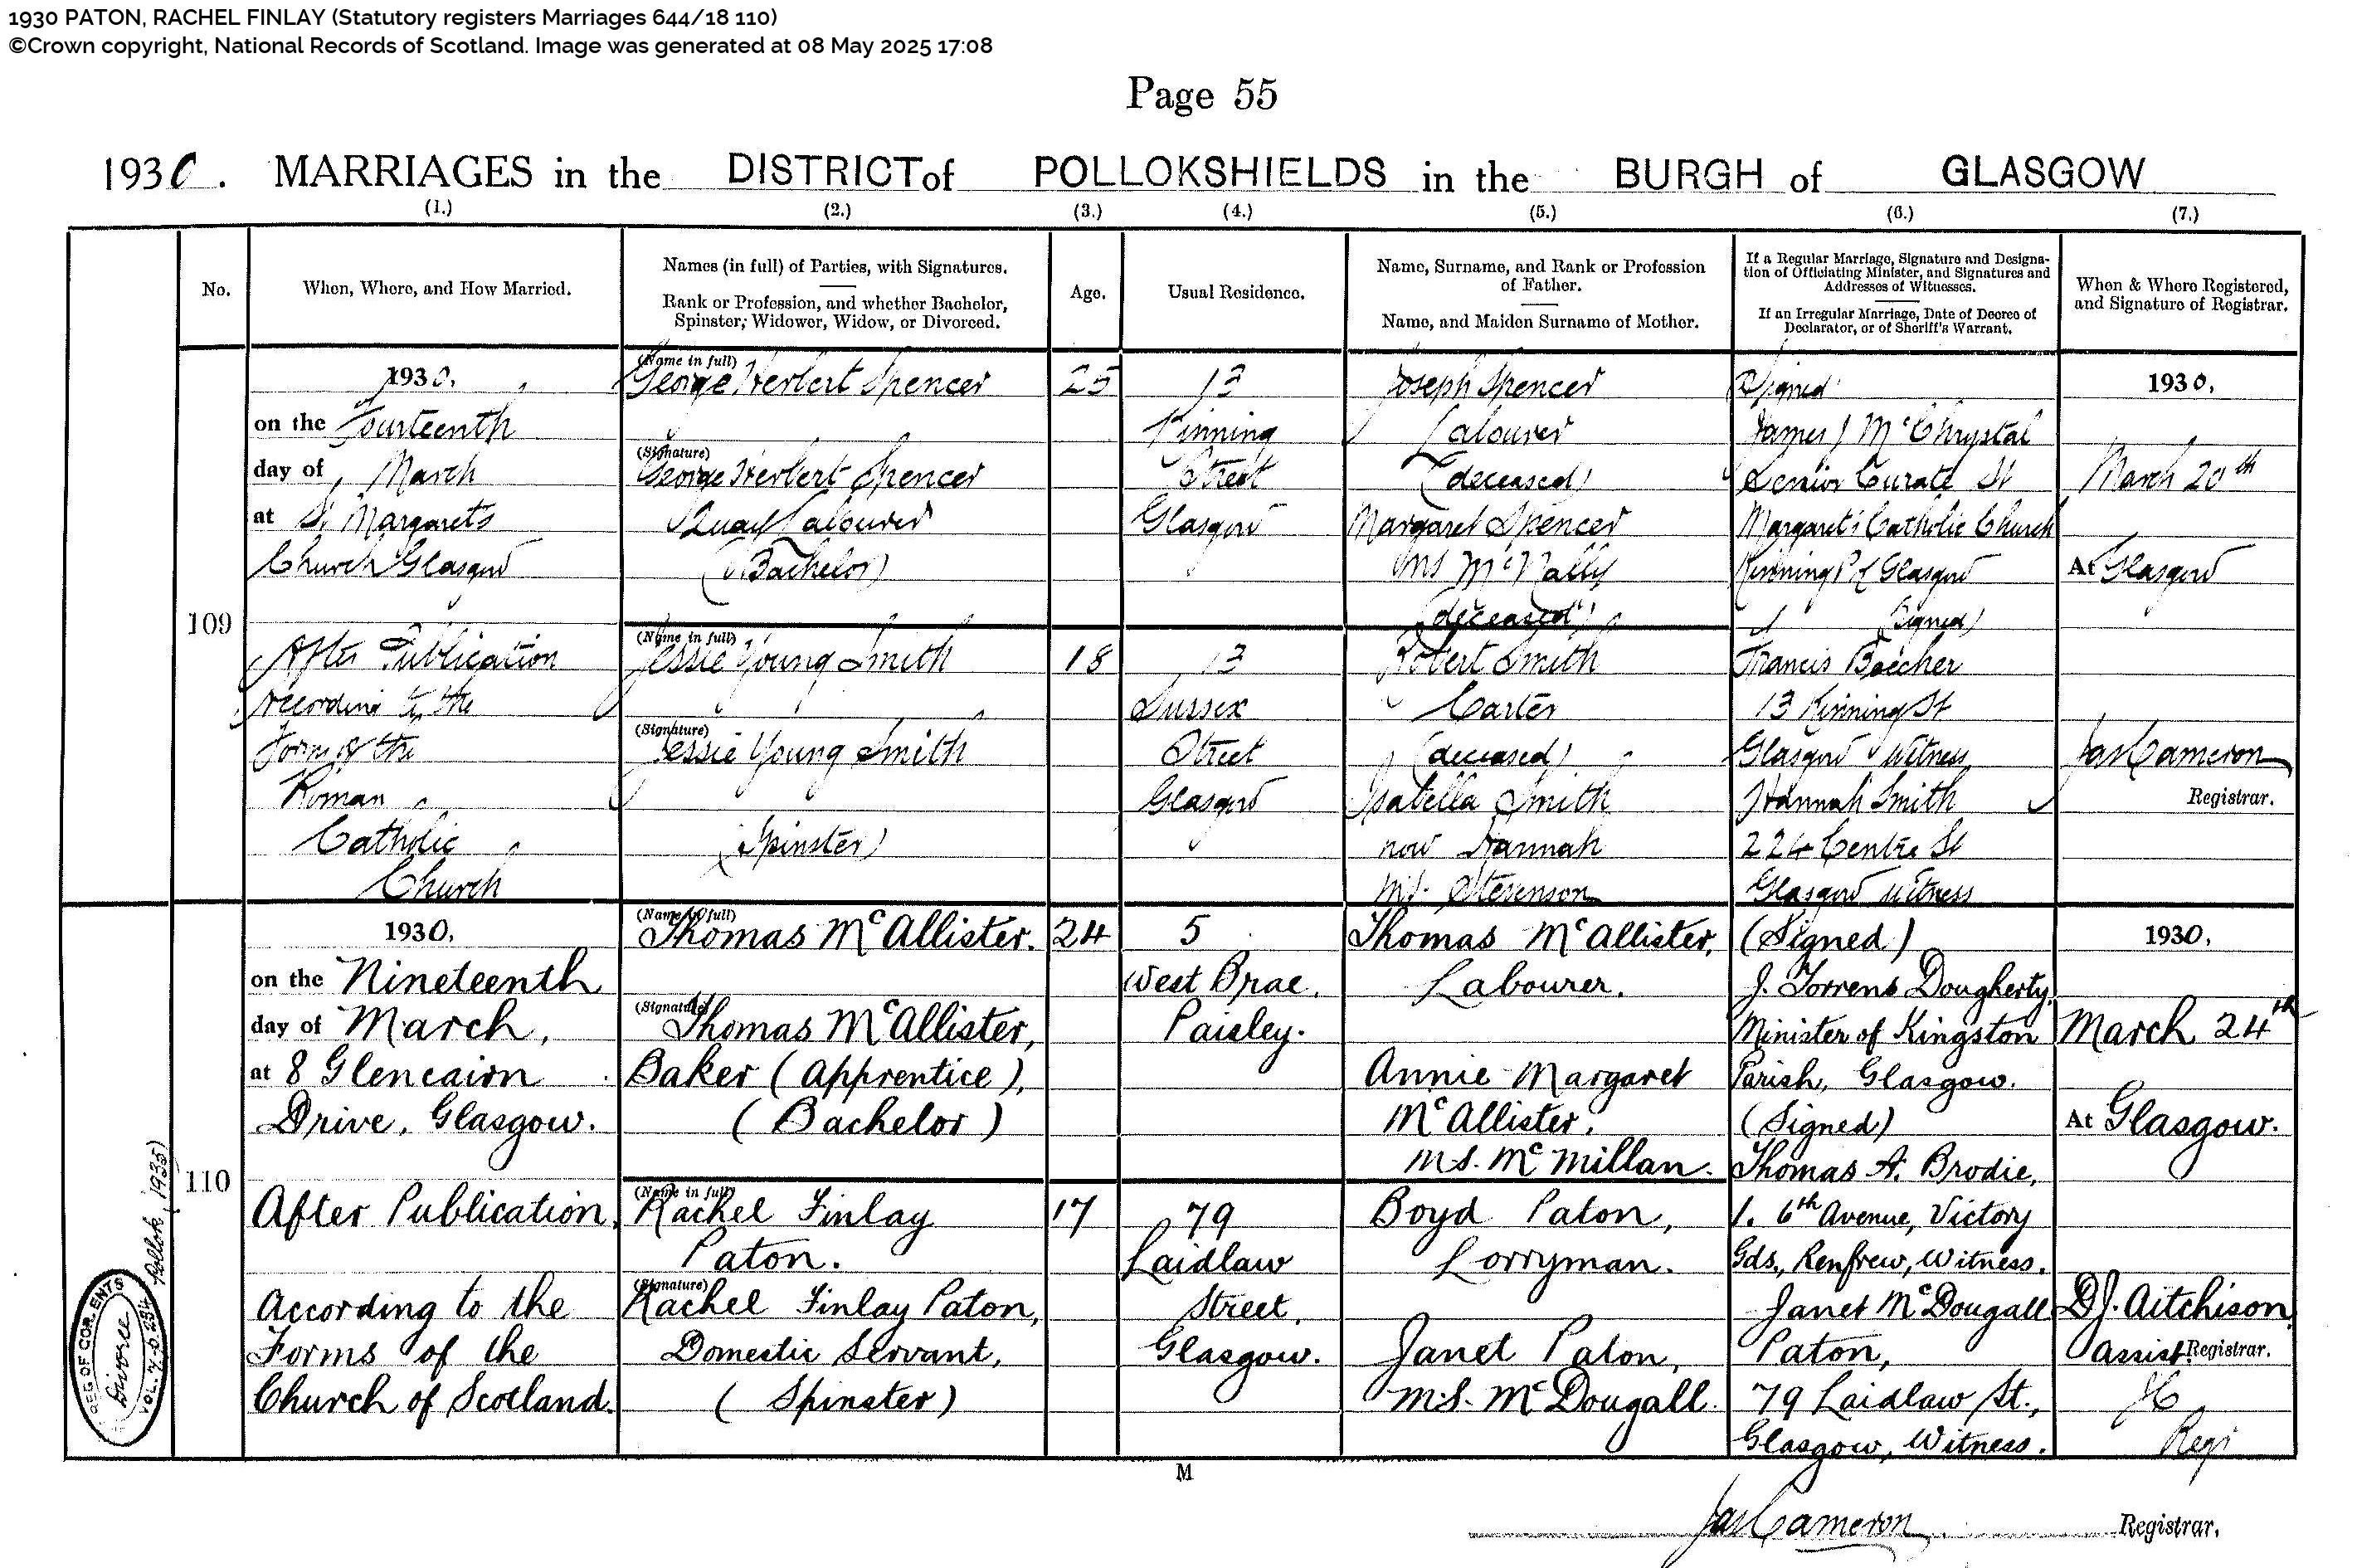 1930 PATON, RACHEL FINLAY (Statutory registers Marriages 644/18 110)
©Crown copyright, National Records of Scotland. Image was generated at 08 May 2025 17:08
Page 55
1930. MARRIAGES in the DISTRICT of POLLOKSHIELDS in the BURGH of GLASGOW
(1.) (2.) (3.) (4.) (5.) (6.) (7.)
No.
When, Where, and How Married.
Names (in full) of Parties, with Signatures.
Rank or Profession, and whether Bachelor,
Spinster, Widower, Widow, or Divorced.
Age.
Usual Residence.
Name, Surname, and Rank or Profession
of Father.
Name, and Maiden Surname of Mother.
If a Regular Marriage, Signature and Designa-
tion of Officiating Minister, and Signatures and
Addresses of Witnesses.
If an Irregular Marriage, Date of Decree of
Declarator, or of Sheriff's Warrant.
When & Where Registered,
and Signature of Registrar.
109
1930.
on the Fourteenth
day of March
at St Margaret's
Church Glasgow
After Publication
according to the
Form of the
Roman
Catholic
Church
(Name in full)
George Herbert Spencer
(Signature)
George Herbert Spencer
Quay Labourer
(Bachelor)
(Name in full)
Jessie Young Smith
(Signature)
Jessie Young Smith
(Spinster)
25
18
13
Kinning
Street
Glasgow
13
Sussex
Street
Glasgow
Joseph Spencer
Labourer
(deceased)
Margaret Spencer
ms McNally
(deceased)
Robert Smith
Carter
(deceased)
Isabella Smith
now Hannah
M.S. Stevenson
Signed
James J McChrystal
Senior Curate St
Margaret's Catholic Church
Kinning Pk Glasgow
(Signed)
Francis Boecher
13 Kinning St
Glasgow Witness
Hannah Smith
224 Centre St
Glasgow Witness
1930.
March 20th
At Glasgow
Jas Cameron
Registrar.
110
1930.
on the Nineteenth
day of March,
at 8 Glencairn
Drive, Glasgow.
After Publication,
According to the
Forms of the
Church of Scotland.
(Name in full)
Thomas McAllister.
(Signature)
Thomas McAllister,
Baker (Apprentice),
(Bachelor)
(Name in full)
Rachel Finlay
Paton.
(Signature)
Rachel Finlay Paton,
Domestic Servant,
(Spinster)
24
17
5
West Brae,
Paisley.
79
Laidlaw
Street,
Glasgow.
Thomas McAllister,
Labourer.
Annie Margaret
McAllister,
M.S. McMillan.
Boyd Paton,
Lorryman.
Janet Paton,
M.S. McDougall.
(Signed)
J. Torrens Dougherty,
Minister of Kingston
Parish, Glasgow.
(Signed)
Thomas A. Brodie,
1. 6th Avenue, Victory
Gds., Renfrew, Witness.
Janet McDougall
Paton,
79 Laidlaw St.,
Glasgow, Witness.
1930.
March 24th
At Glasgow.
D.J. Aitchison,
Assist. Registrar.
JC
Regr
REG OF COR. ENTS
Divorce
VOL. 7. P. 234
Pollok, 1935)
M
Jas Cameron Registrar.